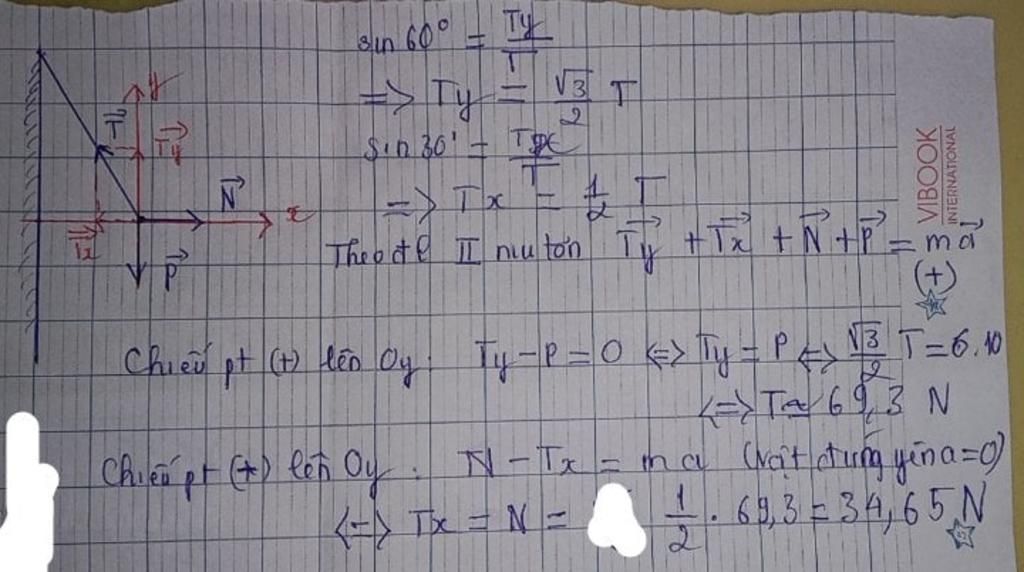 sin 60° = Ty / T
=> Ty = √3/2 T
sin 30' = Tx / T
=> Tx = 1/2 T
y
T
Ty
N
x
Tx
P
Theo đl II niu tơn Ty + Tx + N + P = ma
(+)
Chiếu pt (+) lên Oy: Ty - P = 0 <=> Ty = P <=> √3/2 T = 6.10
<=> T ≈ 69,3 N
Chiếu pt (+) lên Oy: N - Tx = ma (vật đứng yên a=0)
<=> Tx = N = 1/2 . 69,3 = 34,65 N
VIBOOK
INTERNATIONAL